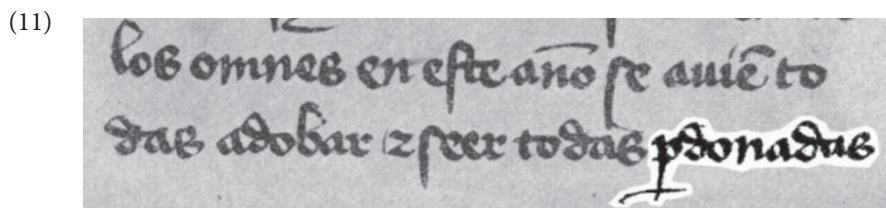 (11)
los omnes en este año se auiẽ to
das adobar ⁊ seer todas ꝑdonadas